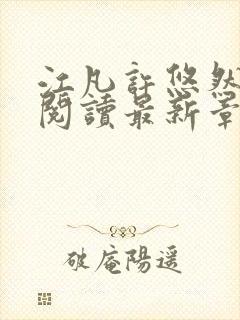 江凡許悠然
閱讀最新章
破庵陽遥